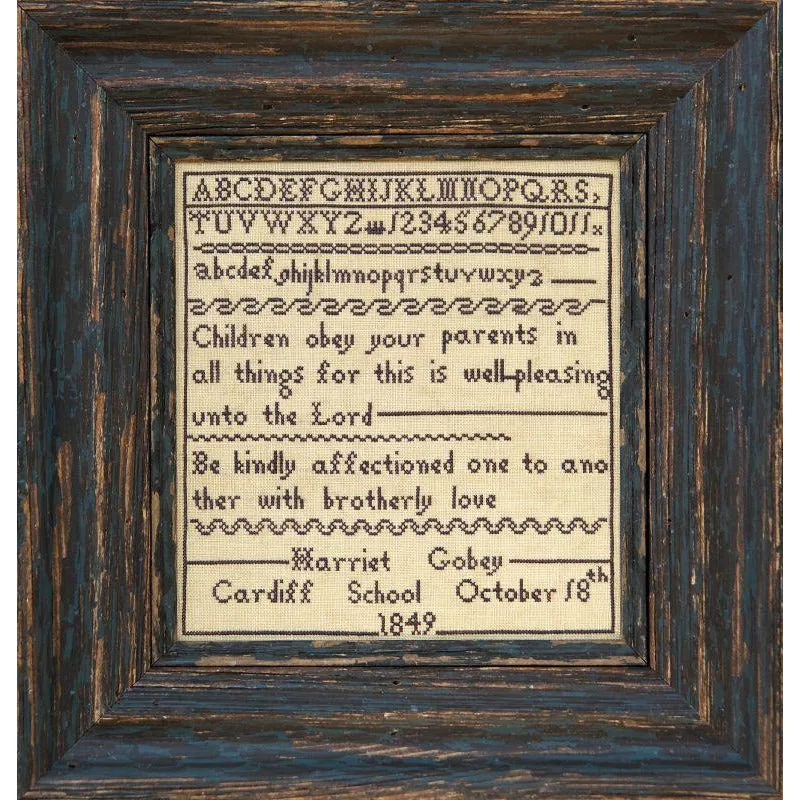 ABCDEFGHIJKLMNOPQRS,
TUVWXYZ 1234567891011x
abcdefghijklmnopqrstuvwxyz
Children obey your parents in
all things for this is well-pleasing
unto the Lord
Be kindly affectioned one to ano
ther with brotherly love
Harriet Gobey
Cardiff School October 18th
1849